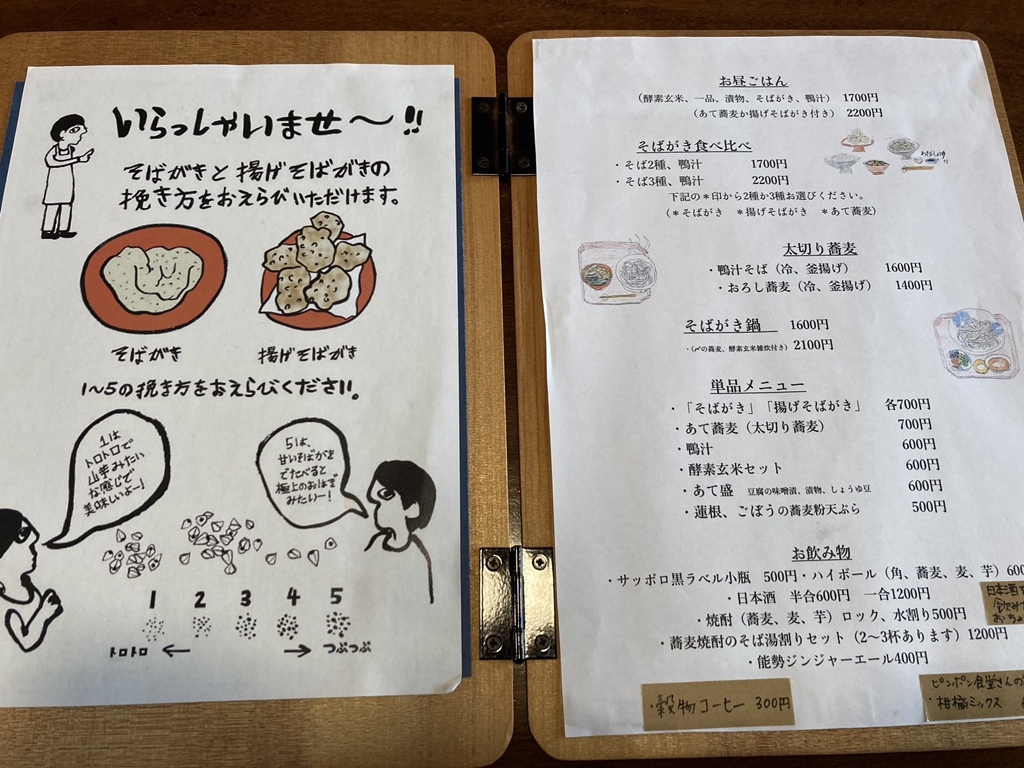 いらっしゃいませ〜!!
そばがきと揚げそばがきの
挽き方をおえらびいただけます。
そばがき
揚げそばがき
1〜5の挽き方をおえらびください。
1は
トロトロで
山芋みたい
な感じで
美味しいよー!
5は、
甘いそばがきを
でたべると
極上のおはぎ
みたいー!
1 2 3 4 5
トロトロ ← → つぶつぶ
お昼ごはん
(酵素玄米、一品、漬物、そばがき、鴨汁) 1700円
(あて蕎麦か揚げそばがき付き) 2200円
そばがき食べ比べ
・そば2種、鴨汁 1700円
・そば3種、鴨汁 2200円
下記の＊印から2種か3種お選びください。
(＊そばがき ＊揚げそばがき ＊あて蕎麦)
太切り蕎麦
・鴨汁そば(冷、釜揚げ) 1600円
・おろし蕎麦(冷、釜揚げ) 1400円
そばがき鍋 1600円
・(〆の蕎麦、酵素玄米雑炊付き) 2100円
単品メニュー
・「そばがき」「揚げそばがき」 各700円
・あて蕎麦(太切り蕎麦) 700円
・鴨汁 600円
・酵素玄米セット 600円
・あて盛 豆腐の味噌漬、漬物、しょうゆ豆 600円
・蓮根、ごぼうの蕎麦粉天ぷら 500円
お飲み物
・サッポロ黒ラベル小瓶 500円・ハイボール(角、蕎麦、麦、芋) 600
・日本酒 半合600円 一合1200円
・焼酎(蕎麦、麦、芋)ロック、水割り500円
・蕎麦焼酎のそば湯割りセット(2〜3杯あります) 1200円
・能勢ジンジャーエール400円
日本酒
・穀物コーヒー 300円
ピンポン食堂さんの
・柑橘ミックス